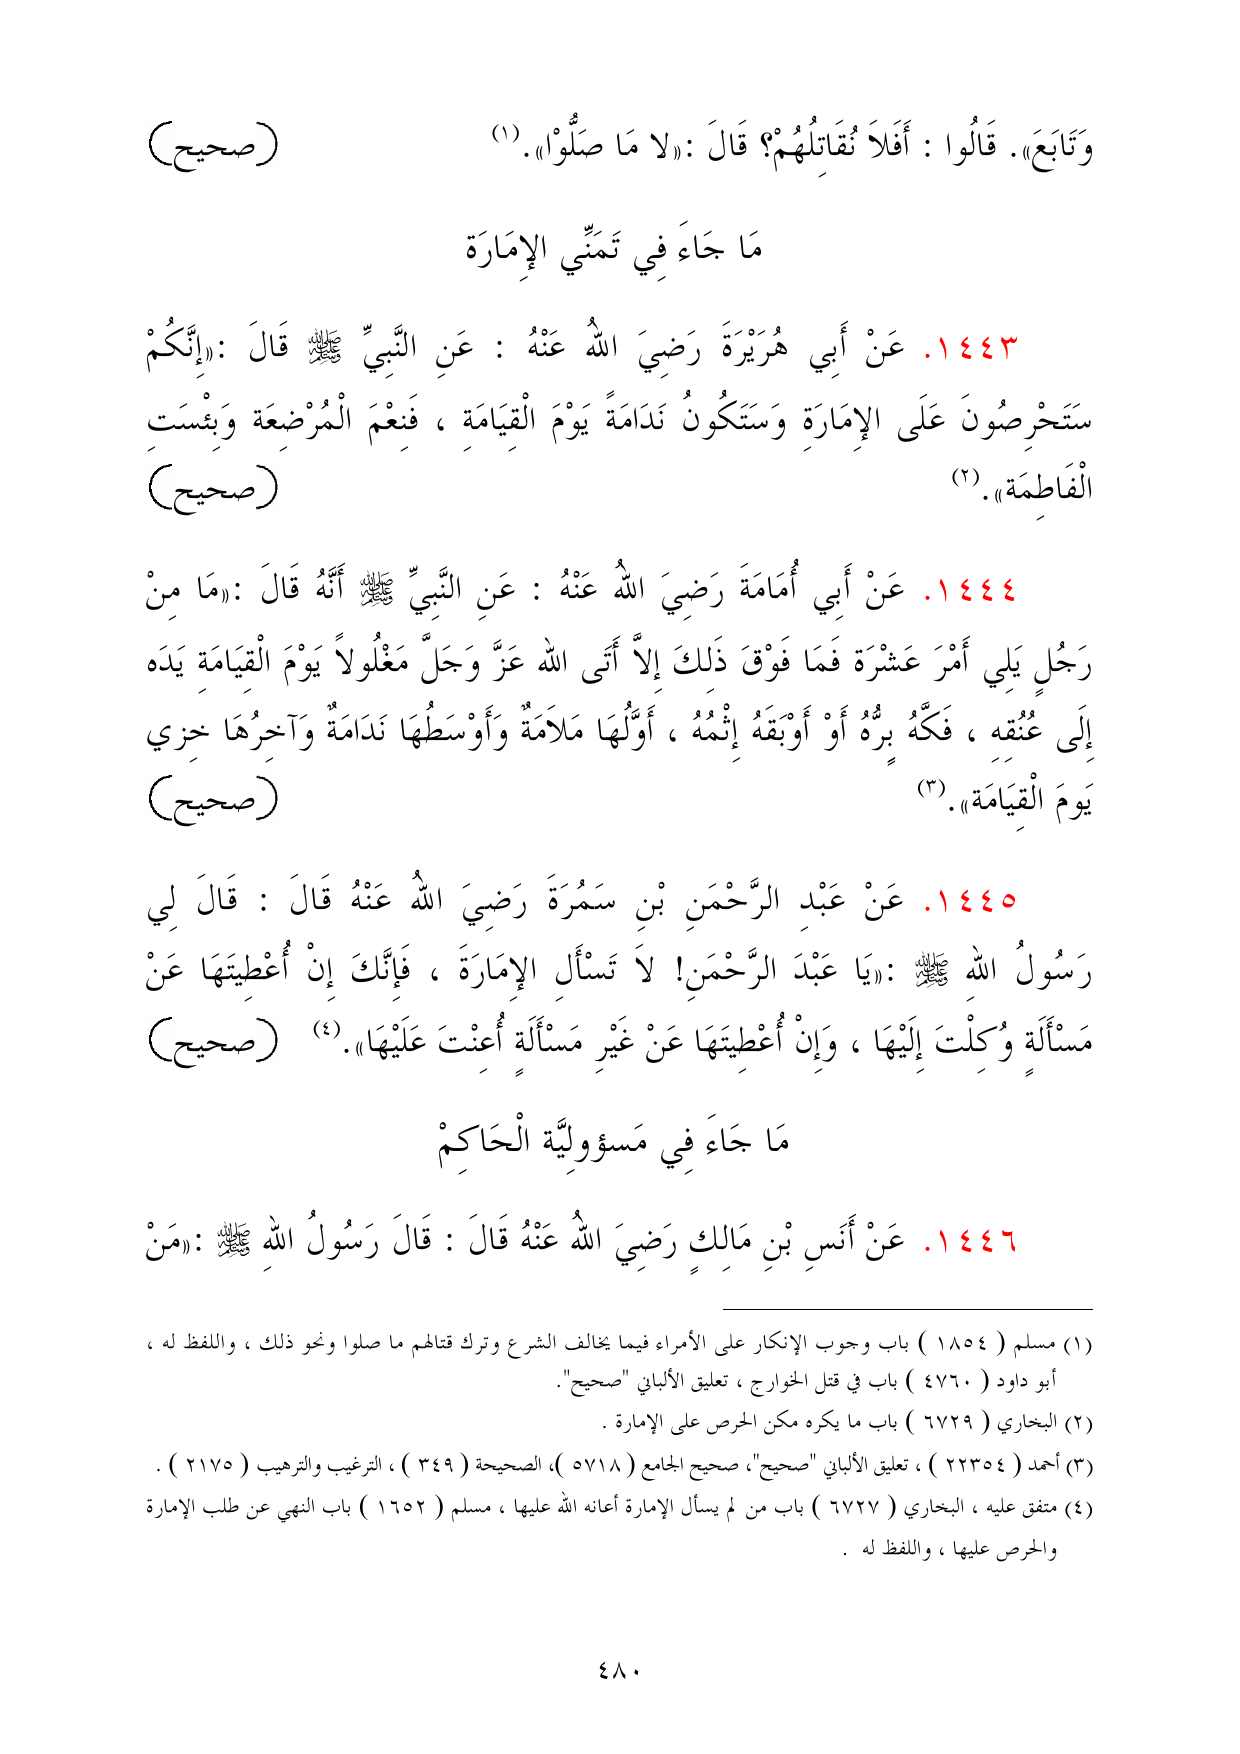 وَتَابَعَ». قَالُوا : أَفَلاَ نُقَاتِلُهُمْ؟ قَالَ :«لا مَا صَلُّوْا».(١) (صحيح)
مَا جَاءَ فِي تَمَنِّي الإِمَارَة
١٤٤٣. عَنْ أَبِي هُرَيْرَةَ رَضِيَ اللهُ عَنْهُ : عَنِ النَّبِيِّ ﷺ قَالَ :«إِنَّكُمْ
سَتَحْرِصُونَ عَلَى الإِمَارَةِ وَسَتَكُونُ نَدَامَةً يَوْمَ الْقِيَامَةِ ، فَنِعْمَ الْمُرْضِعَة وَبِئْسَتِ
الْفَاطِمَة».(٢) (صحيح)
١٤٤٤. عَنْ أَبِي أُمَامَةَ رَضِيَ اللهُ عَنْهُ : عَنِ النَّبِيِّ ﷺ أَنَّهُ قَالَ :«مَا مِنْ
رَجُلٍ يَلِي أَمْرَ عَشْرَة فَمَا فَوْقَ ذَلِكَ إِلاَّ أَتَى الله عَزَّ وَجَلَّ مَغْلُولاً يَوْمَ الْقِيَامَةِ يَدَه
إِلَى عُنُقِهِ ، فَكَّهُ بِرُّهُ أَوْ أَوْبَقَهُ إِثْمُهُ ، أَوَّلُهَا مَلاَمَةٌ وَأَوْسَطُهَا نَدَامَةٌ وَآخِرُهَا خِزي
يَومَ الْقِيَامَة».(٣) (صحيح)
١٤٤٥. عَنْ عَبْدِ الرَّحْمَنِ بْنِ سَمُرَةَ رَضِيَ اللهُ عَنْهُ قَالَ : قَالَ لِي
رَسُولُ اللهِ ﷺ :«يَا عَبْدَ الرَّحْمَنِ! لاَ تَسْأَلِ الإِمَارَةَ ، فَإِنَّكَ إِنْ أُعْطِيتَهَا عَنْ
مَسْأَلَةٍ وُكِلْتَ إِلَيْهَا ، وَإِنْ أُعْطِيتَهَا عَنْ غَيْرِ مَسْأَلَةٍ أُعِنْتَ عَلَيْهَا».(٤) (صحيح)
مَا جَاءَ فِي مَسؤولِيَّة الْحَاكِمْ
١٤٤٦. عَنْ أَنَسِ بْنِ مَالِكٍ رَضِيَ اللهُ عَنْهُ قَالَ : قَالَ رَسُولُ اللهِ ﷺ :«مَنْ
(١) مسلم ( ١٨٥٤ ) باب وجوب الإنكار على الأمراء فيما يخالف الشرع وترك قتالهم ما صلوا ونحو ذلك ، واللفظ له ،
أبو داود ( ٤٧٦٠ ) باب في قتل الخوارج ، تعليق الألباني "صحيح".
(٢) البخاري ( ٦٧٢٩ ) باب ما يكره مكن الحرص على الإمارة .
(٣) أحمد ( ٢٢٣٥٤ ) ، تعليق الألباني "صحيح"، صحيح الجامع ( ٥٧١٨ )، الصحيحة ( ٣٤٩ ) ، الترغيب والترهيب ( ٢١٧٥ ) .
(٤) متفق عليه ، البخاري ( ٦٧٢٧ ) باب من لم يسأل الإمارة أعانه الله عليها ، مسلم ( ١٦٥٢ ) باب النهي عن طلب الإمارة
والحرص عليها ، واللفظ له .
٤٨٠